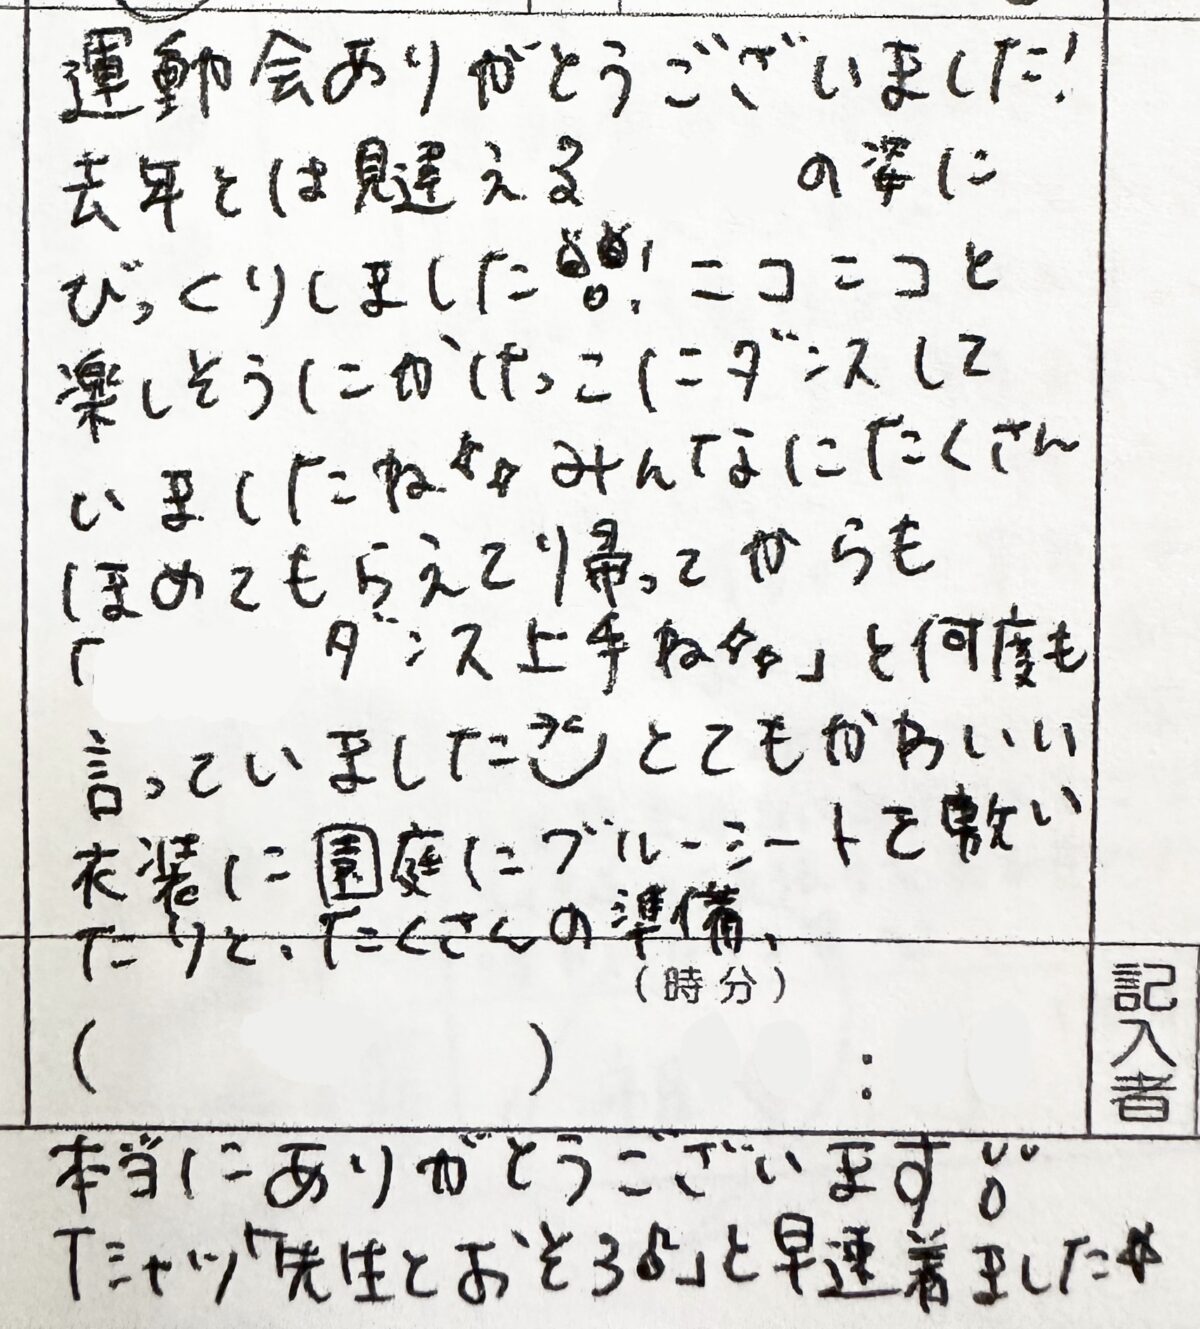 運動会ありがとうございました!
去年とは見違える の姿に
びっくりしました!ニコニコと
楽しそうにかけっこにダンスして
いましたね☆☆みんなにたくさん
ほめてもらえてり帰ってからも
「 ダンス上手ね☆☆」と何度も
言っていました とてもかわいい
衣装に園庭にブルーシートを敷い
たりと、たくさんの準備、
(時分)
( ) :
記入者
本当にありがとうございます
Tシャツ「先生とおそろ♪」と早速着ました☆